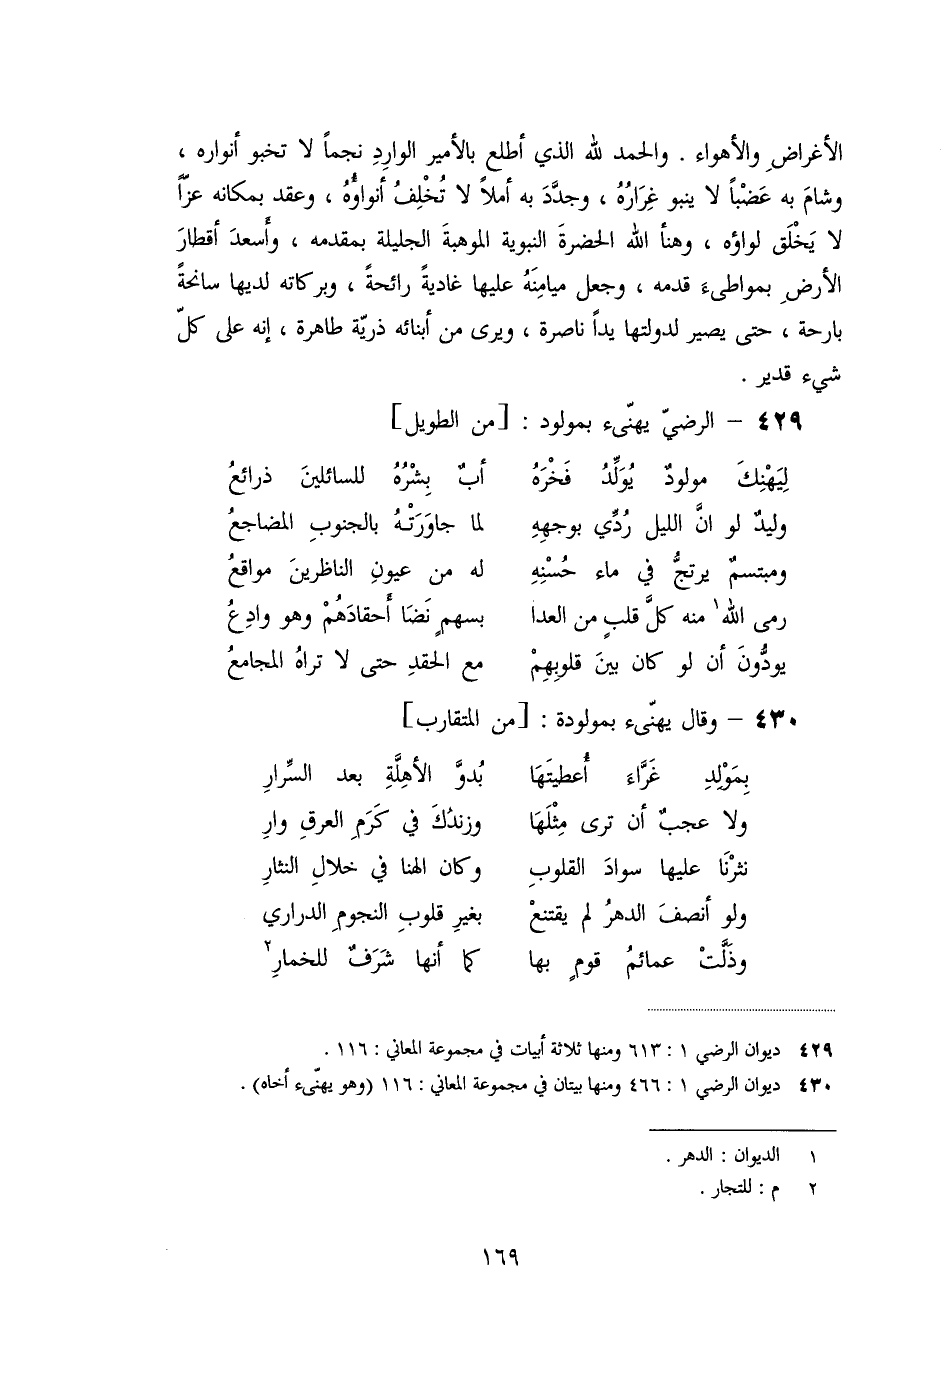 الأغراضِ والأهواء . والحمد لله الذي أطلع بالأمير الواردِ نجماً لا تخبو أنواره ،
وشامَ به عَضْباً لا ينبو غِرَارُهُ ، وجدَّدَ به أملاً لا تُخْلِفُ أنواؤُهُ ، وعقد بمكانه عزّاً
لا يَخْلَق لواؤه ، وهنأ الله الحضرةَ النبوية الموهبةَ الجليلة بمقدمه ، وأسعدَ أقطارَ
الأرضِ بمواطىءَ قدمه ، وجعل ميامِنَهُ عليها غاديةً رائحةً ، وبركاته لديها سانحةً
بارحة ، حتى يصير لدولتها يداً ناصرة ، ويرى من أبنائه ذريّة طاهرة ، إنه على كلّ
شيء قدير .
٤٢٩ – الرضيّ يهنّىء بمولود : [من الطويل]
لِيَهْنِكَ مولودٌ يُوَلِّدُ فَخْرَهُ أبٌ بِشْرُهُ للسائلينَ ذرائعُ
وليدٌ لو انَّ الليل رُدِّي بوجههِ لما جاوَرَتْهُ بالجنوبِ المضاجعُ
ومبتسمٌ يرتجُّ في ماء حُسْنِهِ له من عيونِ الناظرينَ مواقعُ
رمى الله١ منه كلَّ قلبٍ من العدا بسهمٍ نَضَا أحقادَهُمْ وهو وادِعُ
يودُّونَ أن لو كان بينَ قلوبِهِمْ مع الحقدِ حتى لا تراهُ المجامعُ
٤٣٠ – وقال يهنّىء بمولودة : [من المتقارب]
بِمَوْلِدِ غَرَّاءَ أُعطيتَهَا بُدوَّ الأهِلَّةِ بعد السِّرارِ
ولا عجبٌ أن ترى مِثْلَهَا وزندُكَ في كَرَمِ العرقِ وارِ
نثرْنَا عليها سوادَ القلوبِ وكان الهنا في خلالِ النثارِ
ولو أنصفَ الدهرُ لم يقتنعْ بغيرِ قلوبِ النجومِ الدراري
وذَلَّتْ عمائمُ قومٍ بها كما أنها شَرَفٌ للخمارِ٢
٤٢٩ ديوان الرضي ١ : ٦١٣ ومنها ثلاثة أبيات في مجموعة المعاني : ١١٦ .
٤٣٠ ديوان الرضي ١ : ٤٦٦ ومنها بيتان في مجموعة المعاني : ١١٦ (وهو يهنّىء أخاه) .
١ الديوان : الدهر .
٢ م : للتجار .
١٦٩